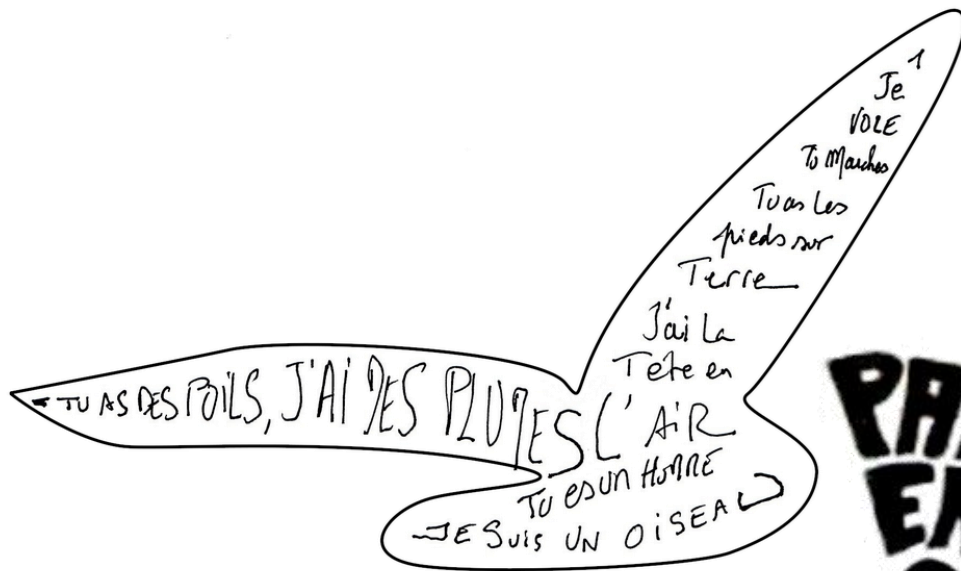 Je
VOLE
Tu Marches
Tu as Les
pieds sur
Terre
J'ai La
Tête en
L'AiR
TU AS DES POILS, J'AI DES PLUMES
TU es un HOMME
JE SUiS UN OiSEAU